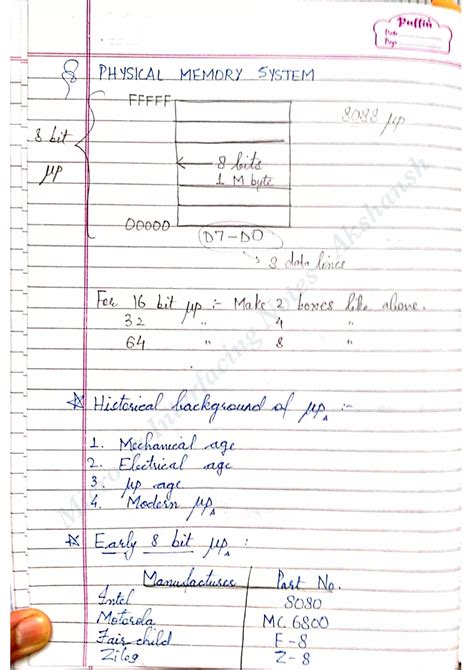 Puffin
Date
Page
PHYSICAL MEMORY SYSTEM
FFFFF
8088 μp
8 bit
μp
8 bits
1 M byte
00000
D7-D0
8 data lines
For 16 bit μp :- Make 2 boxes like above.
32 " 4 "
64 " 8 "
Historical background of μps :-
1. Mechanical age
2. Electrical age
3. μp age
4. Modern μps
Early 8 bit μps :
Manufactures Part No.
Intel 8080
Motorola MC 6800
Fair child F-8
Zilog Z-8
Interfacing Notes - Akshansh